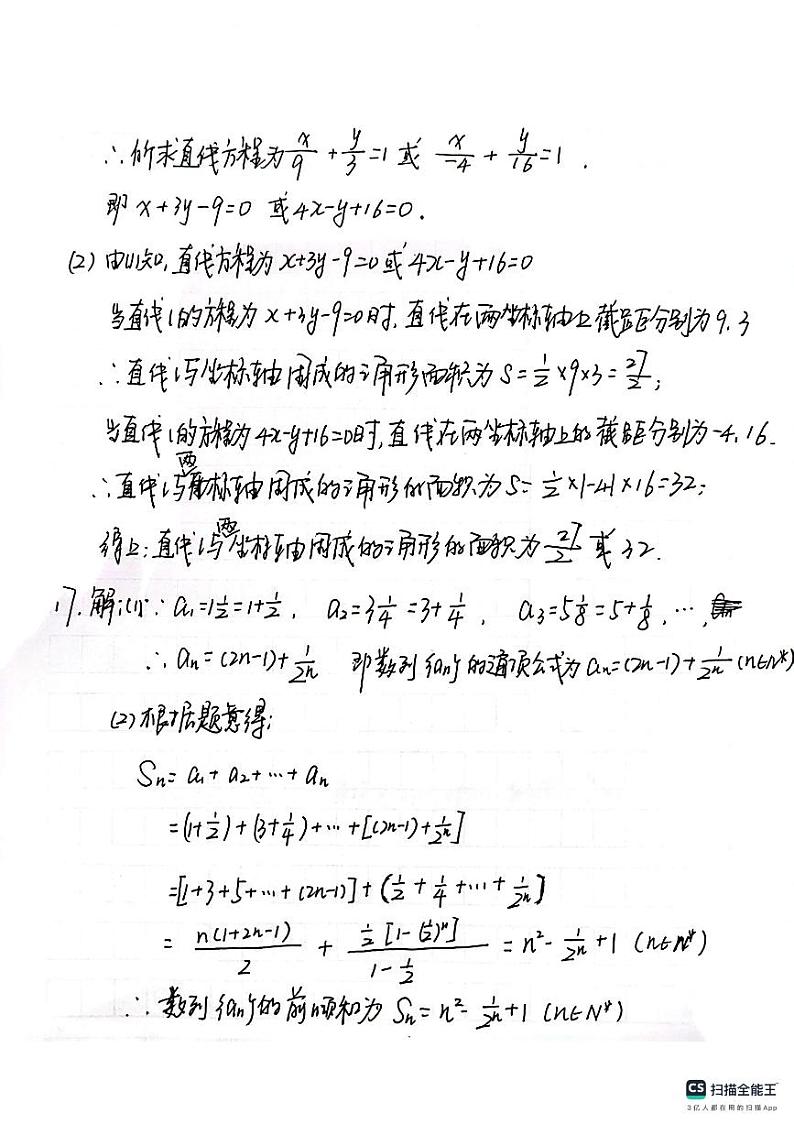 ∴所求直线方程为 x/9 + y/3 = 1 或 x/-4 + y/16 = 1 .
即 x+3y-9=0 或4x-y+16=0.
(2) 由(1)知, 直线方程为 x+3y-9=0 或 4x-y+16=0
当直线l的方程为 x+3y-9=0时, 直线在两坐标轴上截距分别为 9. 3
∴直线l与坐标轴围成的三角形面积为 S= 1/2 ×9×3= 27/2;
当直线l的方程为4x-y+16=0时, 直线在两坐标轴上的截距分别为-4. 16.
∴直线l与两坐标轴围成的三角形的面积为 S= 1/2 ×|-4|×16=32;
综上: 直线l与两坐标轴围成的三角形的面积为 27/2 或 32.
17. 解: (1)∵ a₁=1½=1+½, a₂=3¼=3+¼, a₃=5⅛=5+⅛, …,
∴ aₙ=(2n-1)+1/2ⁿ 即数列{aₙ}的通项公式为 aₙ=(2n-1)+1/2ⁿ (n∈N*)
(2) 根据题意得:
Sₙ= a₁+a₂+…+aₙ
=(1+½)+(3+¼)+…+[(2n-1)+1/2ⁿ]
=[1+3+5+…+(2n-1)]+(½+¼+…+1/2ⁿ)
= n(1+2n-1)/2 + ½[1-(½)ⁿ]/(1-½) = n²-1/2ⁿ+1 (n∈N*)
∴数列{aₙ}的前n项和为 Sₙ=n²-1/2ⁿ+1 (n∈N*)
CS 扫描全能王™
3亿人都在用的扫描App